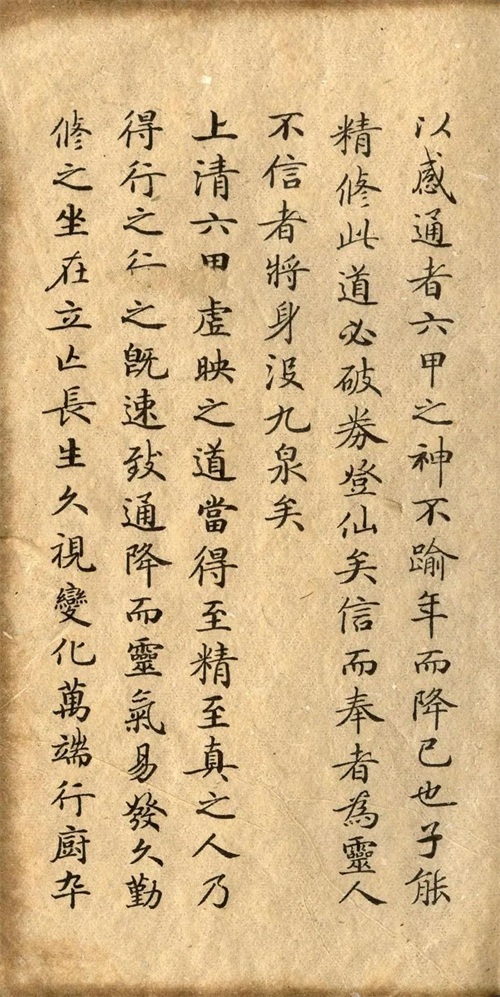 以感通者六甲之神不踰年而降已也子能
精修此道必破券登仙矣信而奉者為靈人
不信者將身沒九泉矣
上清六甲虛映之道當得至精至真之人乃
得行之行之既速致通降而靈氣易發久勤
修之坐在立亡長生久視變化萬端行廚卒